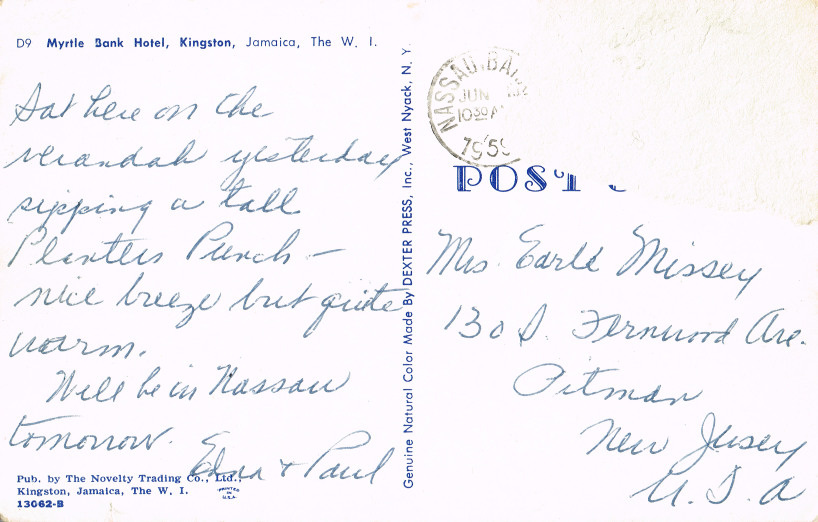 D9 Myrtle Bank Hotel, Kingston, Jamaica, The W. I.
Sat here on the
verandah yesterday
sipping a tall
Planters Punch –
nice breeze but quite
warm.
Will be in Nassau
tomorrow.
Edna + Paul
Pub. by The Novelty Trading Co., Ltd.,
Kingston, Jamaica, The W. I.
13062-B
PRINTED
IN
U.S.A.
Genuine Natural Color Made By DEXTER PRESS, Inc., West Nyack, N. Y.
NASSAU, BA
JUN
10 30 A
195
POST
Mrs. Earle Missey
130 S. Fernwood Ave.
Pitman
New Jersey
U. S. A